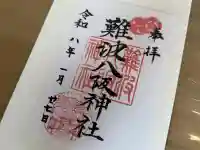 奉拝
難波八阪神社
令和八年一月廿七日